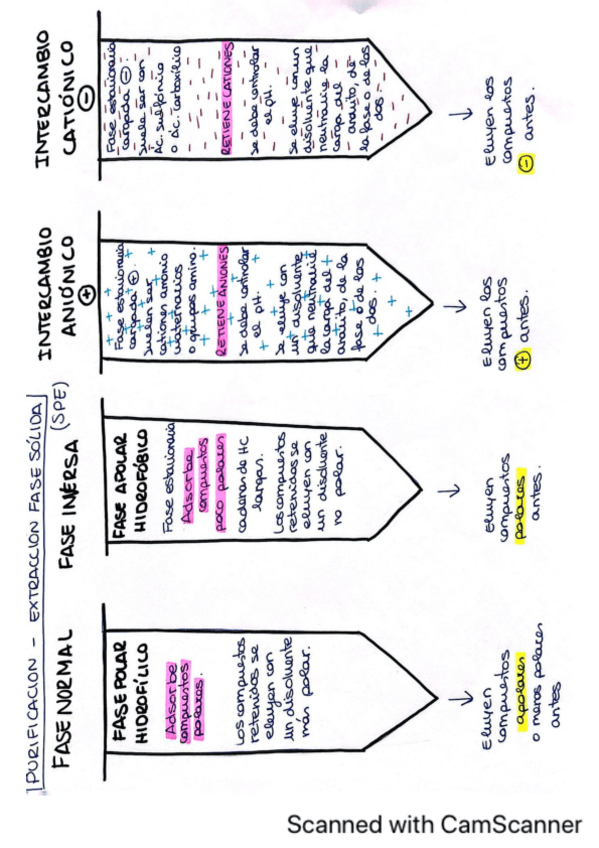 PURIFICACIÓN - EXTRACCIÓN FASE SÓLIDA
(SPE)
FASE NORMAL
FASE POLAR
HIDROFÍLICO
Adsorbe
compuestos
polares.
Los compuestos
retenidos se
eluyen con
un disolvente
más polar.
Eluyen
compuestos
apolares
o menos polares
antes
FASE INVERSA
FASE APOLAR
HIDROFÓBICO
Fase estacionaria
Adsorbe
compuestos
poco polares
cadenas de HC
largas.
Los compuestos
retenidos se
eluyen con
un disolvente
no polar.
Eluyen
compuestos
polares
antes.
INTERCAMBIO
ANIÓNICO
+
Fase estacionaria
cargada +.
Suelen ser
cationes amonio
cuaternarios
o grupos amino.
RETIENE ANIONES
Se debe controlar
el pH.
Se eluye con
un disolvente
que neutralice
la carga del
analito, de la
fase o de las
dos.
Eluyen los
compuestos
+ antes.
INTERCAMBIO
CATIÓNICO
-
Fase estacionaria
cargada -
Suele ser con
Ác. sulfónico
o Ác. carboxílico
RETIENE CATIONES
Se debe controlar
el pH.
Se eluye con un
disolvente que
neutralice la
carga del
analito, de
la fase o de las
dos
Eluyen los
compuestos
- antes.
Scanned with CamScanner